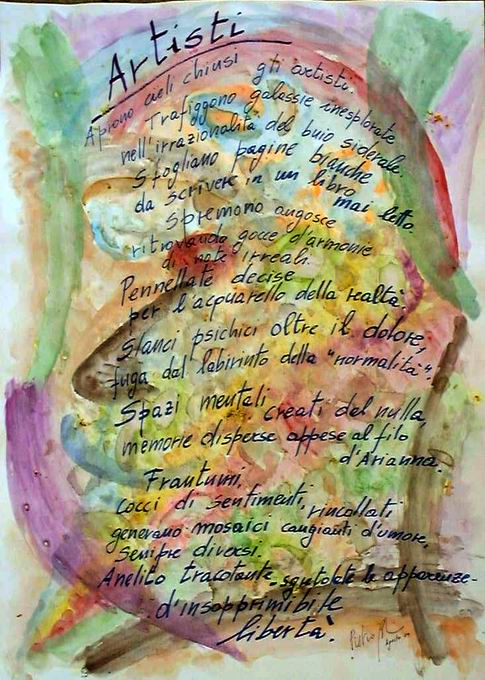 Artisti
Aprono cieli chiusi gli artisti.
Trafiggono galassie inesplorate
nell'irrazionalità del buio siderale.
Sfogliano pagine bianche
da scrivere in un libro
mai letto.
Spremono angosce
ritrovando gocce d'armonie
di note irreali.
Pennellate decise
per l'acquarello della realtà.
Slanci psichici oltre il dolore,
fuga dal labirinto della "normalità".
Spazi mentali creati dal nulla,
memorie disperse appese al filo
d'Arianna.
Frantumi,
cocci di sentimenti, rincollati
generano mosaici cangianti d'umore,
sempre diversi.
Anelito tracotante, sgretolate le apparenze -
d'insopprimibile
libertà.
Pietro